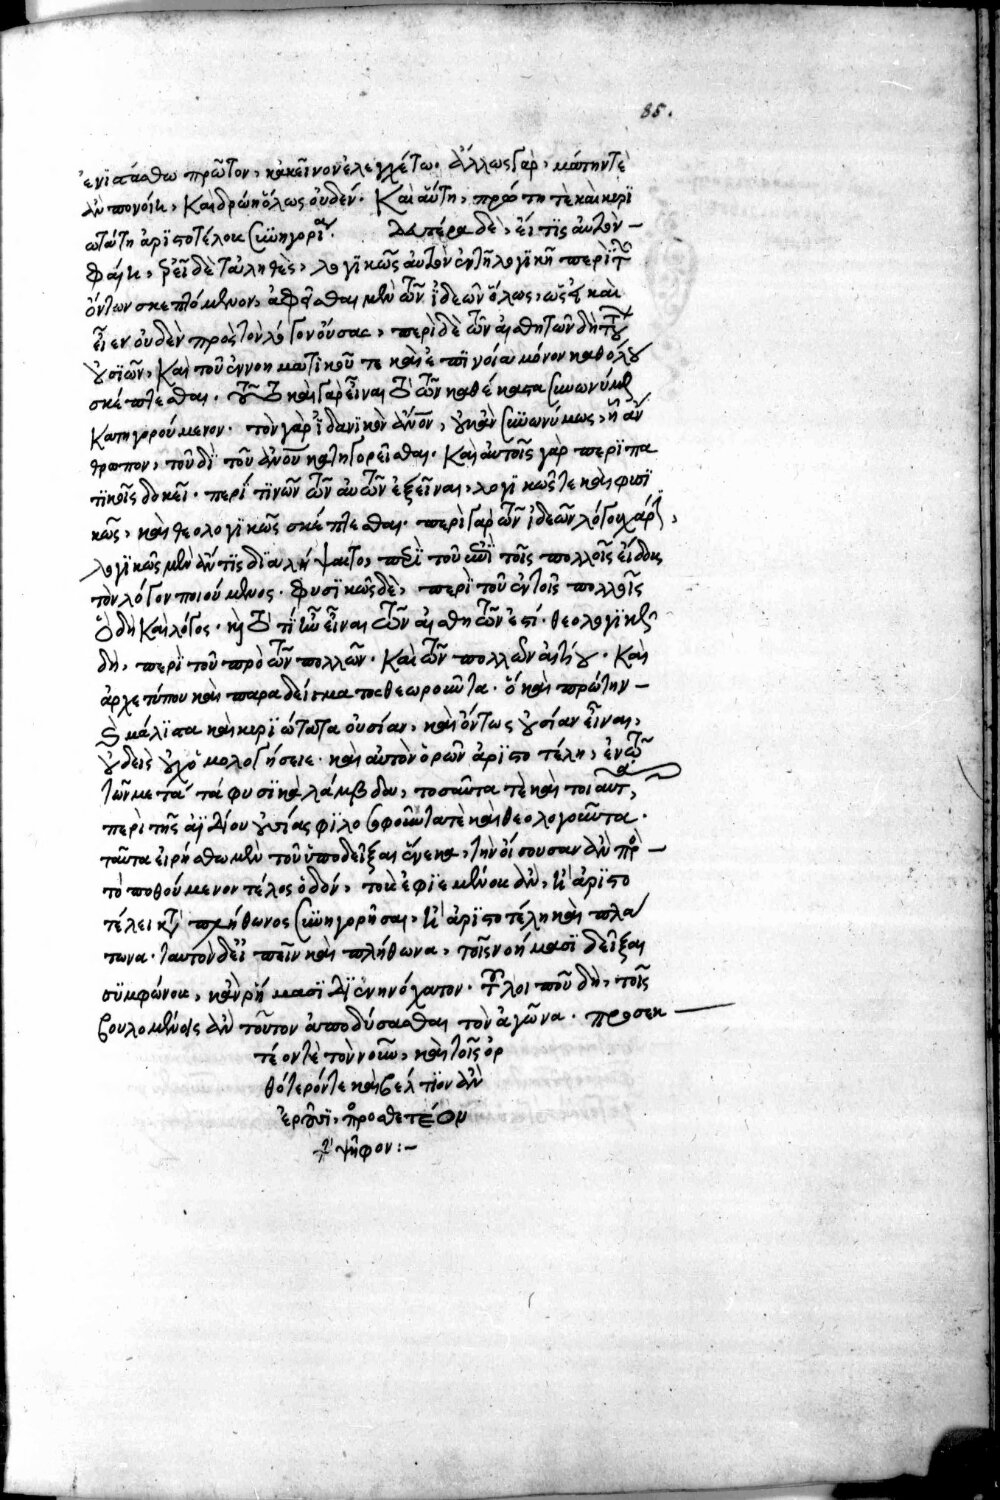 85.
ἐνιστάσθω πρῶτον, κἀκεῖνον ἐλεγχέτω. ἄλλως γὰρ, μάτην τὲ
ἂν πονοίη, καὶ δρώη ὅλως οὐδέν. Καὶ αὕτη, πρώτη τὲ καὶ κυρι
ωτάτη ἀριστοτέλους συνηγορία. Δευτέρα δὲ, εἴ τις αὐτὸν
φαίη, ὃ εἶ δὲ τἀληθὲς, λογικῶς αὐτὸν ἐν τῇ λογικῇ περὶ τῶν
ὄντων σκεπτόμενον, ἀφίστασθαι μὲν τῶν ἰδεῶν ὅλως, ὡς καὶ
εἶεν οὐδὲν πρὸς τὸν λόγον οὔσας, περὶ δὲ τῶν αἰσθητῶν δὴ τού
οὐσιῶν, καὶ τοῦ ἐννοηματικοῦ τε καὶ ἐπινοία μόνον καθόλου
σκέπτεσθαι. τοῦτο καὶ γὰρ εἶναι τὸ τῶν καθέκαστα συνωνύμως
κατηγορούμενον. τὸν γὰρ ἰδανικὸν ἄνον, οὐκ ἂν συνωνύμως, ᾗ ἄν
θρωπον, τουδὶ τοῦ ἀνου κατηγορεῖσθαι. Καὶ αὐτοῖς γὰρ περιπα
τικοῖς δοκεῖ. περί τινῶν τῶν αυτῶν ἐξεῖναι, λογικῶς τε καὶ φυσι
κῶς, καὶ θεολογικῶς σκέπτεσθαι. περὶ γὰρ τῶν ἰδεῶν λόγου χάριν,
λογικῶς μὲν ἄν τις διαλήψαιτο, περὶ τοῦ ἐπὶ τοῖς πολλοῖς εἴδους
τὸν λόγον ποιούμενος. φυσικῶς δὲ, περὶ τοῦ ἐν τοῖς πολλοῖς
ὃ δὴ καὶ λόγος. καὶ τὸ τί ἦν εἶναι τῶν αἰσθητῶν ἐστί. θεολογικῶς
δὴ, περὶ τοῦ πρὸ τῶν πολλῶν. Καὶ τῶν πολλῶν αἰτίου. Καὶ
ἀρχετύπου καὶ παραδείγματος θεωροῦντα. ὃ καὶ πρώτην
μάλιστα καὶ κυριώτατα οὐσίαν, καὶ ὄντως οὐσίαν εἶναι,
οὐδεὶς οὐχ ὁμολογήσειε. καὶ αὐτὸν ὁρῶν ἀριστοτέλη, ἐν τῷ
τῶν μετὰ τά φυσικὰ λάμβδα, τοσαῦτα τὲ καὶ τοιαῦτα,
περὶ τῆς ἀϊδίου οὐσίας φιλοσοφοῦντα τὲ καὶ θεολογοῦντα.
ταῦτα εἰρήσθω μὲν τοῦ ὑποδεῖξαι ἕνεκα, τὴν οἴσουσαν ἂν πρὸς
τὸ ποθούμενον τέλος ὁδόν, τοῖς ἐφιεμένοις ἂν, ἢ ἀριστο
τέλει κατὰ πλήθωνος συνηγορῆσαι, ἢ ἀριστοτέλη καὶ πλά
τωνα. ταυτὸν δ' εἰπεῖν καὶ πλήθωνα, τοῖς νοήμασι δεῖξαι
συμφώνους, κἂν ῥήμασι διενηνόχατον. δῆλοι που δὴ, τοῖς
βουλομένοις ἂν τοῦτον ἀποδύσασθαι τὸν ἀγῶνα. προσεκ
τέον τὲ τὸν νοῦν, καὶ τοῖς ὀρ
θότερόν τε καὶ βέλτιον ἂν
ἐροῦσι, προσθετέον
τὴν ψῆφον: